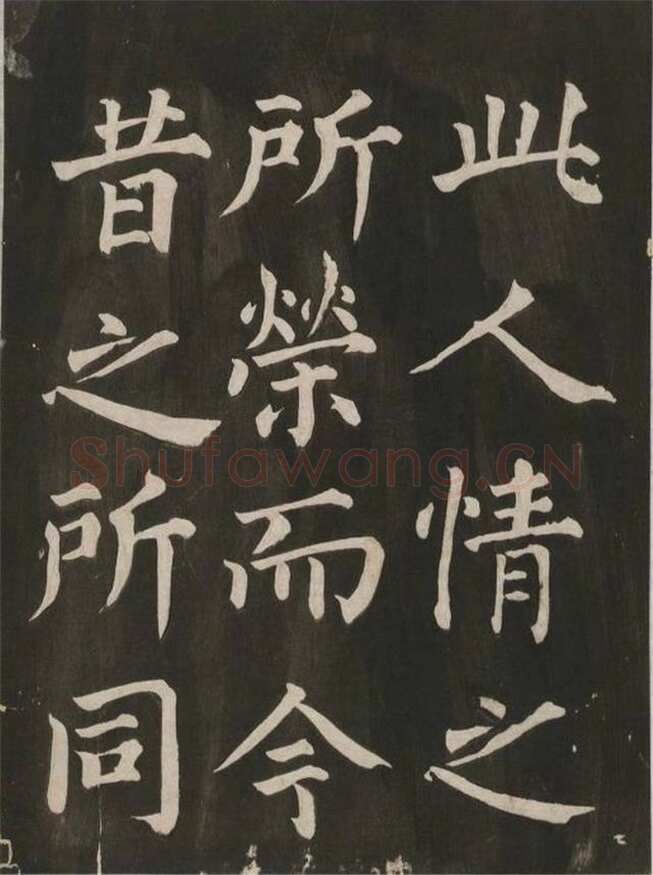 此人情之
所榮而今
昔之所同
Shufawang.CN